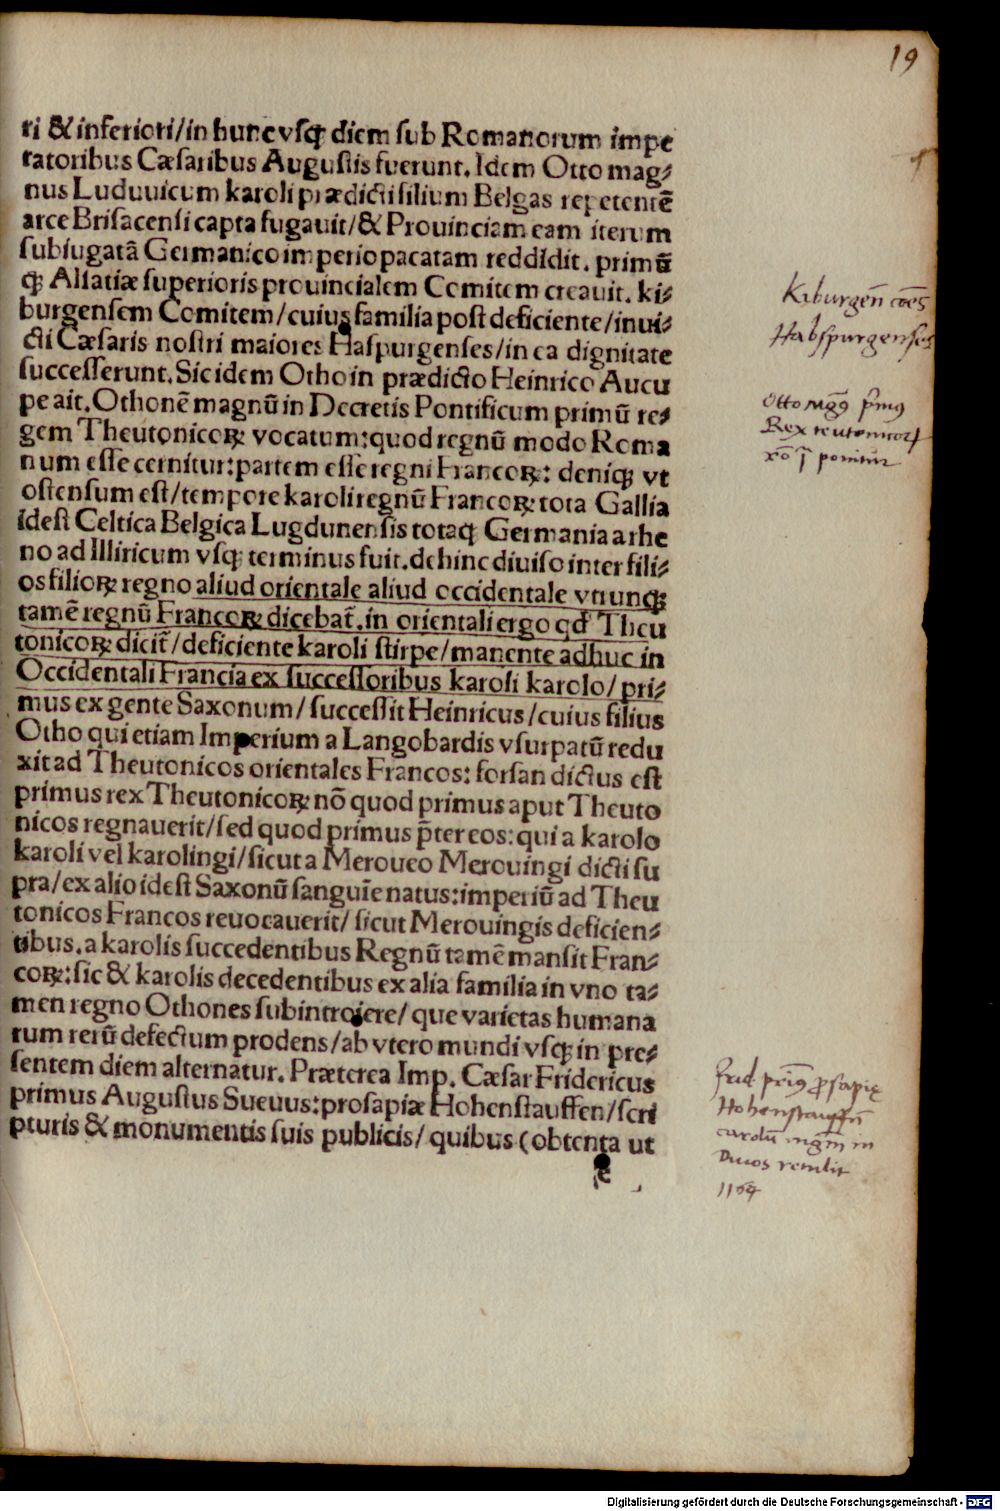 19
ri & inferiori/in hunc vsq; diem sub Romanorum impe
ratoribus Cæsaribus Augustis fuerunt. Idem Otto mag⸗
nus Luduuicum karoli prædicti filium Belgas repetentē
arce Brisacensi capta fugauit/& Prouinciam eam iterum
subiugatā Germanico imperio pacatam reddidit. primū
q; Alsatiæ superioris prouincialem Comitem creauit. ki⸗
burgensem Comitem/cuius familia post deficiente/inui⸗
cti Cæsaris nostri maiores Haspurgenses/in ea dignitate
successerunt. Sic idem Otho in prædicto Heinrico Aucu
pe ait. Othonē magnū in Decretis Pontificum primū re⸗
gem Theutonicoꝝ vocatum: quod regnū modo Roma
num esse cernitur: partem esse regni Francoꝝ: deniq; vt
ostensum est/tempore karoli regnū Francoꝝ tota Gallia
idest Celtica Belgica Lugdunensis totaq; Germania a rhe
no ad Illiricum vsq; terminus fuit. dehinc diuiso inter fili⸗
os filioꝝ regno aliud orientale aliud occidentale vtrunq;
tamē regnū Francoꝝ dicebat̃. in orientali ergo qd̓ Theu
tonicoꝝ dicit̃/deficiente karoli stirpe/manente adhuc in
Occidentali Francia ex successoribus karoli karolo/pri⸗
mus ex gente Saxonum/successit Heinricus/cuius filius
Otho qui etiam Imperium a Langobardis vsurpatū redu
xit ad Theutonicos orientales Francos: forsan dictus est
primus rex Theutonicoꝝ nō quod primus aput Theuto
nicos regnauerit/sed quod primus p̄ter eos: qui a karolo
karoli vel karolingi/sicut a Meroueo Merouingi dicti su
pra/ex alio idest Saxonū sanguīe natus: imperiū ad Theu
tonicos Francos reuocauerit/sicut Merouingis deficien⸗
tibus. a karolis succedentibus Regnū tamē mansit Fran⸗
coꝝ: sic & karolis decedentibus ex alia familia in vno ta⸗
men regno Othones subintroiere/que varietas humana
rum rerū defectum prodens/ab vtero mundi vsq; in pre⸗
sentem diem alternatur. Præterea Imp. Cæsar Fridericus
primus Augustus Sueuus: prosapiæ Hohenstauffen/scri
pturis & monumentis suis publicis/quibus (obtenta ut
e
Kiburgen̄ com̄es
Habspurgenses
Otto mgꝰ p̄mꝰ
Rex teutonicoꝝ
ponitur
Frid. prosapię
Hohenstauffn̄
carolū mgm̄ in
Diuos retulit
1164
Digitalisierung gefördert durch die Deutsche Forschungsgemeinschaft - DFG